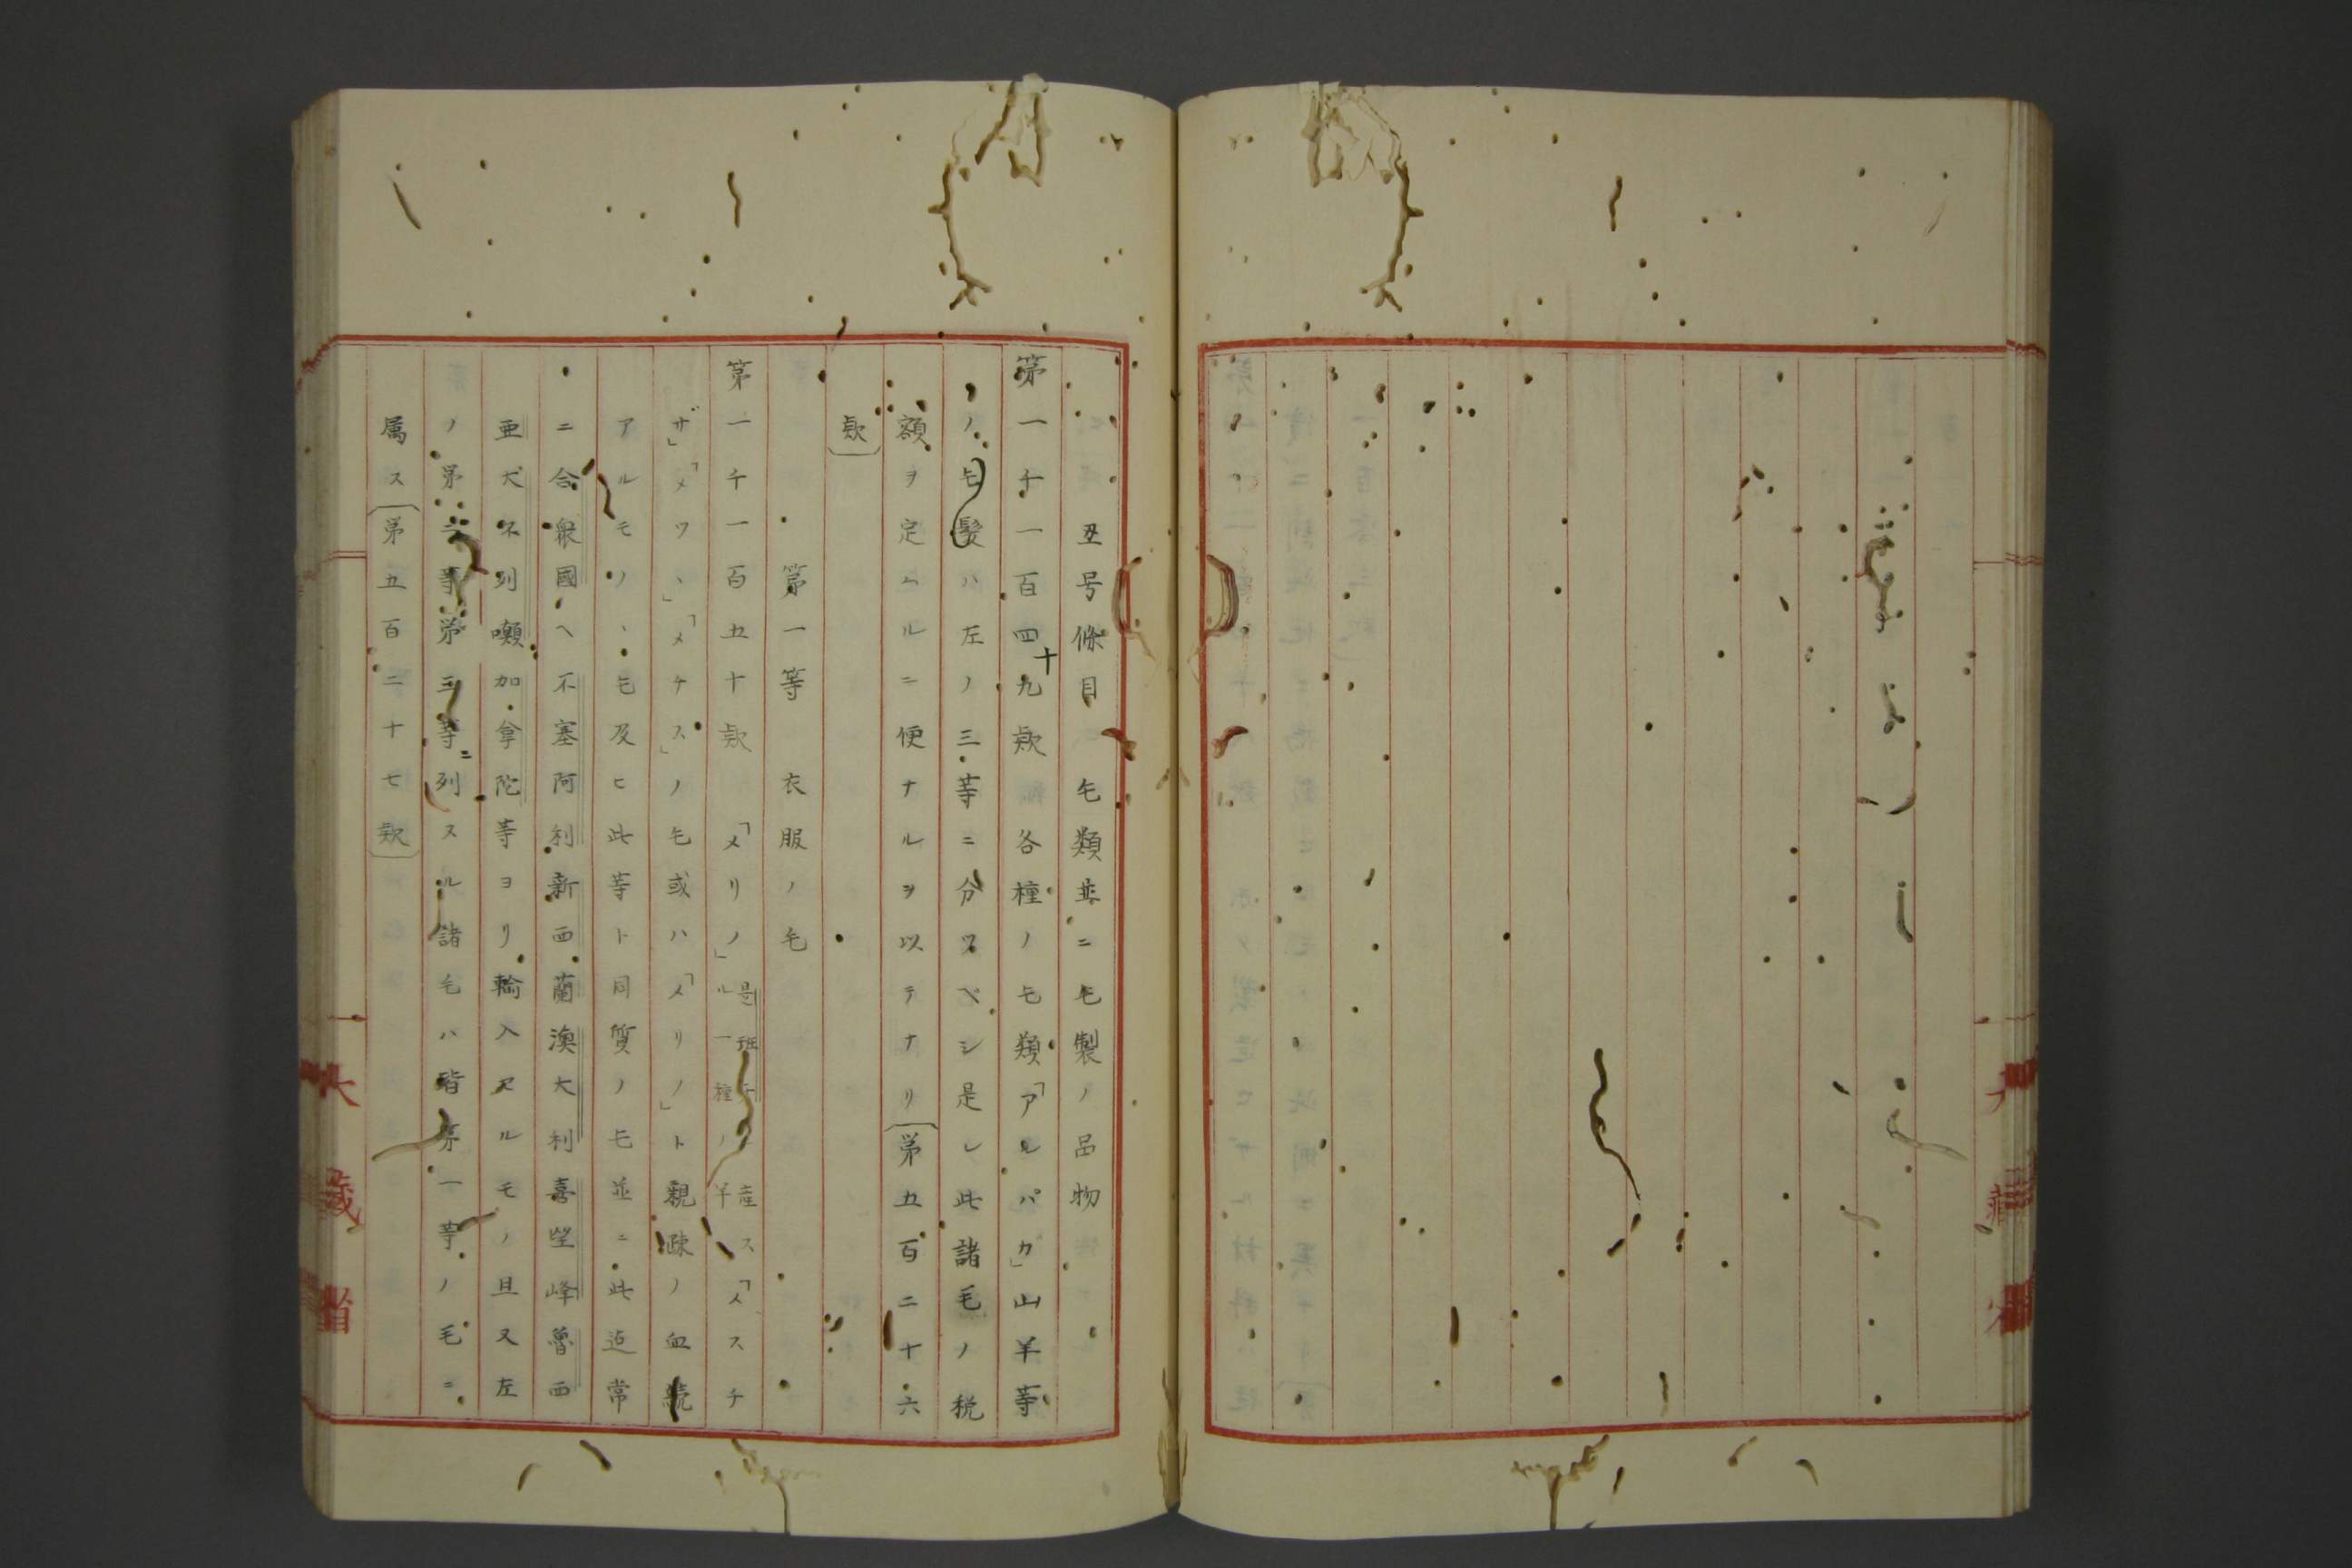 丑号條目　毛類並ニ毛製ノ品物
第一千一百四十九欵　各種ノ毛類「アルパカ」山羊等
ノ毛髪ハ左ノ三等ニ分ツベシ是レ此諸毛ノ税
額ヲ定ムルニ便ナルヲ以テナリ〔第五百二十六
欵〕
第一等　衣服ノ毛
第一千一百五十欵　「メリノ」是班牙ニ産スル一種ノ羊「メスチ
ザ」「メツ、」「メチス」ノ毛或ハ「メリノ」ト親疎ノ血続
アルモノヽ毛及ヒ此等ト同質ノ毛並ニ此迄常
ニ合衆國ヘ不塞阿利新西蘭澳大利喜望峰魯西
亜大不列囒加拿陀等ヨリ輸入アルモノ且又左
ノ第二等第三等ニ列スル諸毛ハ皆第一等ノ毛ニ
属ス〔第五百二十七欵〕
大藏省